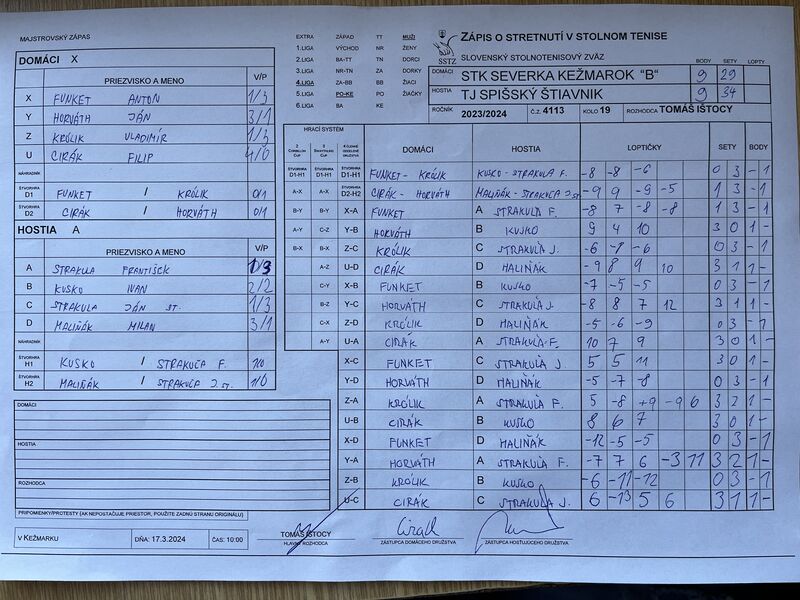 MAJSTROVSKÝ ZÁPAS
DOMÁCI X
PRIEZVISKO A MENO V/P
X FUNKET ANTON 1/3
Y HORVÁTH JÁN 3/1
Z KRÓLIK VLADIMÍR 1/3
U CIRÁK FILIP 4/0
NÁHRADNÍK
ŠTVORHRA D1 FUNKET / KRÓLIK 0/1
ŠTVORHRA D2 CIRÁK / HORVÁTH 0/1
HOSTIA A
PRIEZVISKO A MENO V/P
A STRAKULA FRANTIŠEK 1/3
B KUSKO IVAN 2/2
C STRAKULA JÁN ST. 1/3
D MALIŇÁK MILAN 3/1
NÁHRADNÍK
ŠTVORHRA H1 KUSKO / STRAKUĽA F. 1/0
ŠTVORHRA H2 MALIŇÁK / STRAKUĽA J.ST. 1/0
DOMÁCI
HOSTIA
ROZHODCA
PRIPOMIENKY/PROTESTY (AK NEPOSTAČUJE PRIESTOR, POUŽITE ZADNÚ STRANU ORIGINÁLU)
V KEŽMARKU DŇA: 17.3.2024 ČAS: 10:00
EXTRA ZÁPAD TT MUŽI
1.LIGA VÝCHOD NR ŽENY
2.LIGA BA-TT TN DORCI
3.LIGA NR-TN ZA DORKY
4.LIGA ZA-BB BB ŽIACI
5.LIGA PO-KE PO ŽIAČKY
6.LIGA BA KE
SSTZ
ZÁPIS O STRETNUTÍ V STOLNOM TENISE
SLOVENSKÝ STOLNOTENISOVÝ ZVÄZ
BODY SETY LOPTY
DOMÁCI STK SEVERKA KEŽMAROK "B" 9 29
HOSTIA TJ SPIŠSKÝ ŠTIAVNIK 9 34
ROČNÍK 2023/2024 Č.Z. 4113 KOLO 19 ROZHODCA TOMÁŠ IŠTOCY
HRACÍ SYSTÉM
2 CORBILLON CUP
3 SWAYTHLING CUP
4 ČLENNÉ DRUŽSTVÁ
DOMÁCI HOSTIA LOPTIČKY SETY BODY
ŠTVORHRA D1-H1 ŠTVORHRA D1-H1 ŠTVORHRA D1-H1 FUNKET - KRÓLIK KUSKO - STRAKULA F. -8 -8 -6 0 3 - 1
A-X A-X ŠTVORHRA D2-H2 CIRÁK - HORVÁTH MALIŇÁK - STRAKUĽA J.ST. -9 9 -9 -5 1 3 - 1
B-Y B-Y X-A FUNKET A STRAKULA F. -8 7 -8 -8 1 3 - 1
A-Y C-Z Y-B HORVÁTH B KUSKO 9 4 10 3 0 1 -
B-X B-X Z-C KRÓLIK C STRAKUĽA J. -6 -7 -6 0 3 - 1
A-Z U-D CIRÁK D MALIŇÁK -9 8 9 10 3 1 1 -
C-Y X-B FUNKET B KUSKO -7 -5 -5 0 3 - 1
B-Z Y-C HORVÁTH C STRAKUĽA J. -8 8 7 12 3 1 1 -
C-X Z-D KRÓLIK D MALIŇÁK -5 -6 -9 0 3 - 1
A-Y U-A CIRÁK A STRAKUĽA F. 10 7 9 3 0 1 -
X-C FUNKET C STRAKUĽA J. 5 5 11 3 0 1 -
Y-D HORVÁTH D MALIŇÁK -5 -7 -8 0 3 - 1
Z-A KRÓLIK A STRAKUĽA F. 5 -8 +9 -9 6 3 2 1 -
U-B CIRÁK B KUSKO 8 6 7 3 0 1 -
X-D FUNKET D MALIŇÁK -12 -5 -5 0 3 - 1
Y-A HORVÁTH A STRAKUĽA F. -7 7 6 -3 11 3 2 1 -
Z-B KRÓLIK B KUSKO -6 -11 -12 0 3 - 1
U-C CIRÁK C STRAKUĽA J. 6 -13 5 6 3 1 1 -
TOMÁŠ IŠTOCY
HLAVNÝ ROZHODCA
Cirák
ZÁSTUPCA DOMÁCEHO DRUŽSTVA
ZÁSTUPCA HOSŤUJÚCEHO DRUŽSTVA